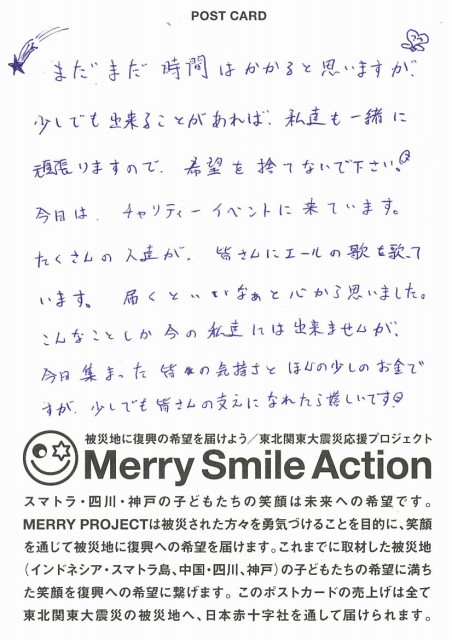 POST CARD
まだまだ時間はかかると思いますが、
少しでも出来ることがあれば、私達も一緒に
頑張りますので、希望を捨てないで下さい。
今日は、チャリティーイベントに来ています。
たくさんの人達が、皆さんにエールの歌を歌って
います。届くといいなぁと心から思いました。
こんなことしか今の私達には出来ませんが、
今日集まった皆々の気持ちとほんの少しのお金で
すが、少しでも皆さんの支えになれたら嬉しいです!
被災地に復興の希望を届けよう/東北関東大震災応援プロジェクト
Merry Smile Action
スマトラ・四川・神戸の子どもたちの笑顔は未来への希望です。
MERRY PROJECTは被災された方々を勇気づけることを目的に、笑顔
を通じて被災地に復興への希望を届けます。これまでに取材した被災地
(インドネシア・スマトラ島、中国・四川、神戸)の子どもたちの希望に満ち
た笑顔を復興への希望に繋げます。このポストカードの売上げは全て
東北関東大震災の被災地へ、日本赤十字社を通して届けられます。